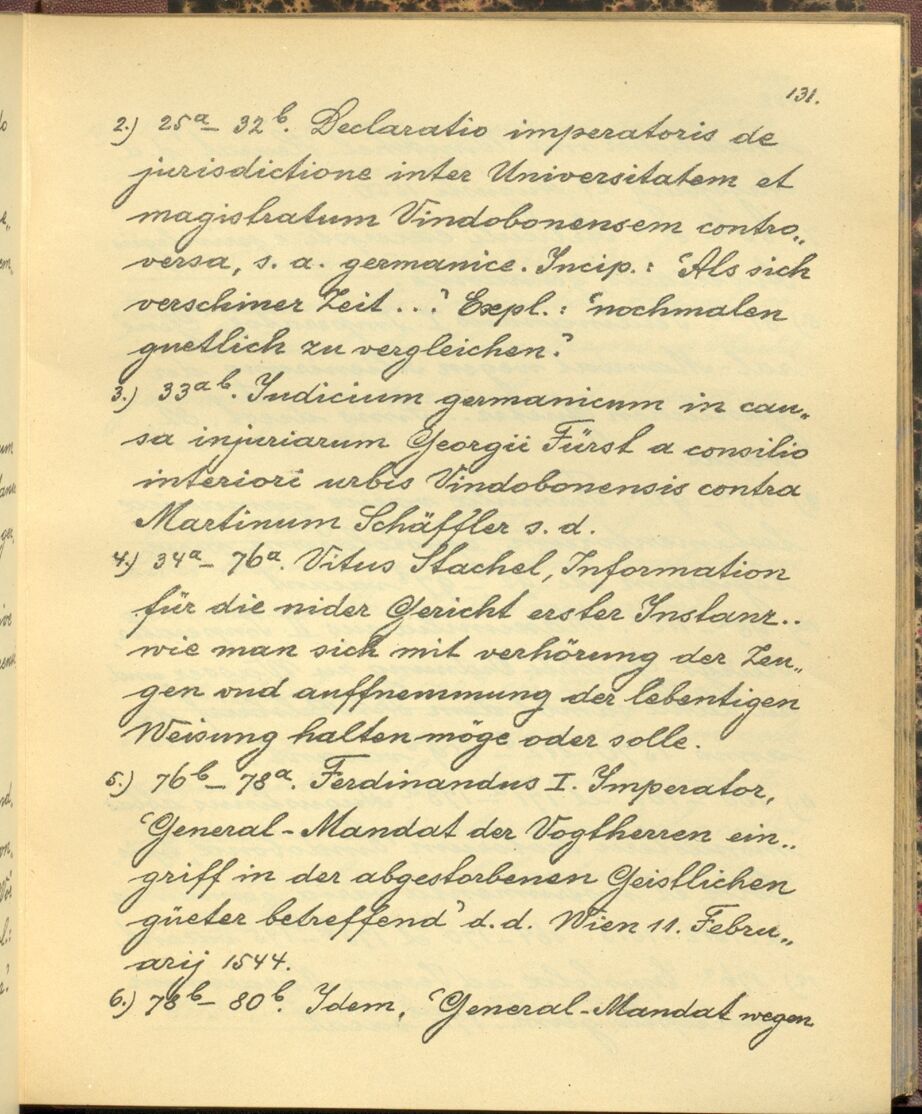 131.
2.) 25a– 32b. Declaratio imperatoris de
jurisdictione inter Universitatem et
magistratum Vindobonensem contro„
versa, s. a. germanice. Incip.: 'Als sich
verschiner Zeit ...' Expl.: 'nochmalen
guetlich zu vergleichen.'
3.) 33ab. Iudicium germanicum in cau„
sa injuriarum Georgii Fürst a consilio
interiori urbis Vindobonensis contra
Martinum Schäffler s. d.
4.) 34a– 76a. Vitus Stachel, Information
für die nider Gericht erster Instanz..
wie man sich mit verhörung der Zeu„
gen vnd auffnemmung der lebentigen
Weisung halten möge oder solle.
5.) 76b– 78a. Ferdinandus I. Imperator,
'General-Mandat der Vogtherren ein„
griff in der abgestorbenen Geistlichen
güeter betreffend' d. d. Wien 11. Febru„
arij 1544.
6.) 78b– 80b. Idem, 'General-Mandat wegen